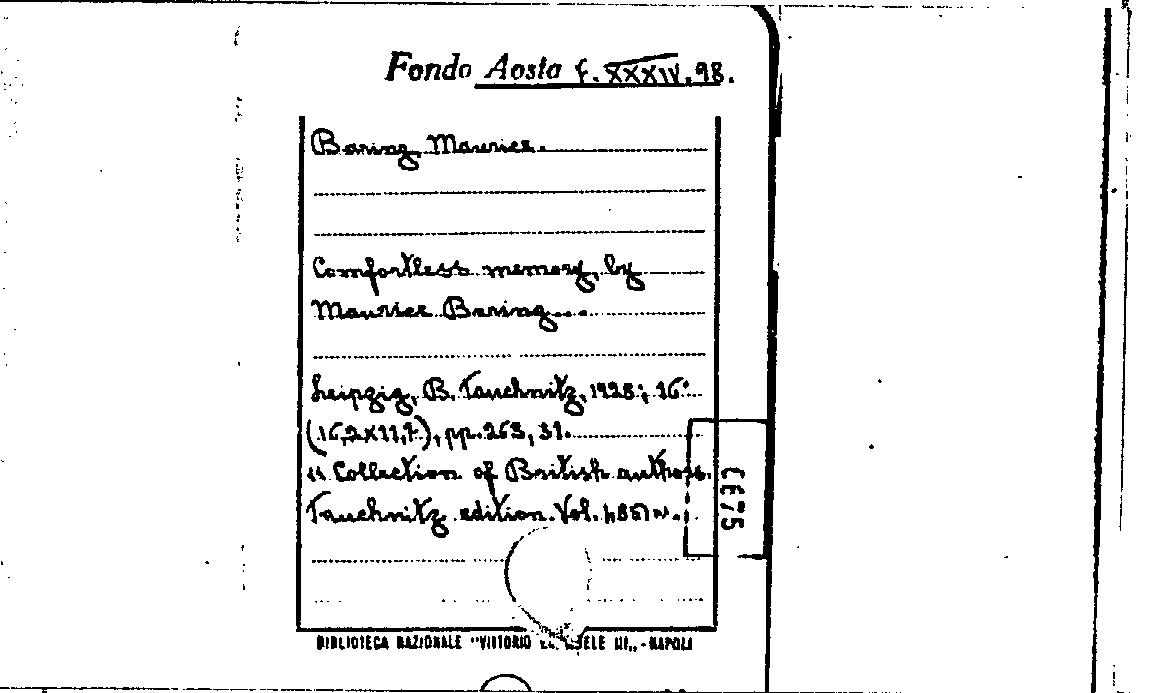 Fondo Aosta f. XXXIV. 98.
Baring Maurice.
Comfortless memory, by
Maurice Baring...
Leipzig, B. Tauchnitz, 1928; 16°
(16,2x11,7), pp. 263, 31.
" Collection of British authors.
Tauchnitz edition. Vol. 4851 ".
CE75
BIBLIOTECA NAZIONALE "VITTORIO III„ - NAPOLI